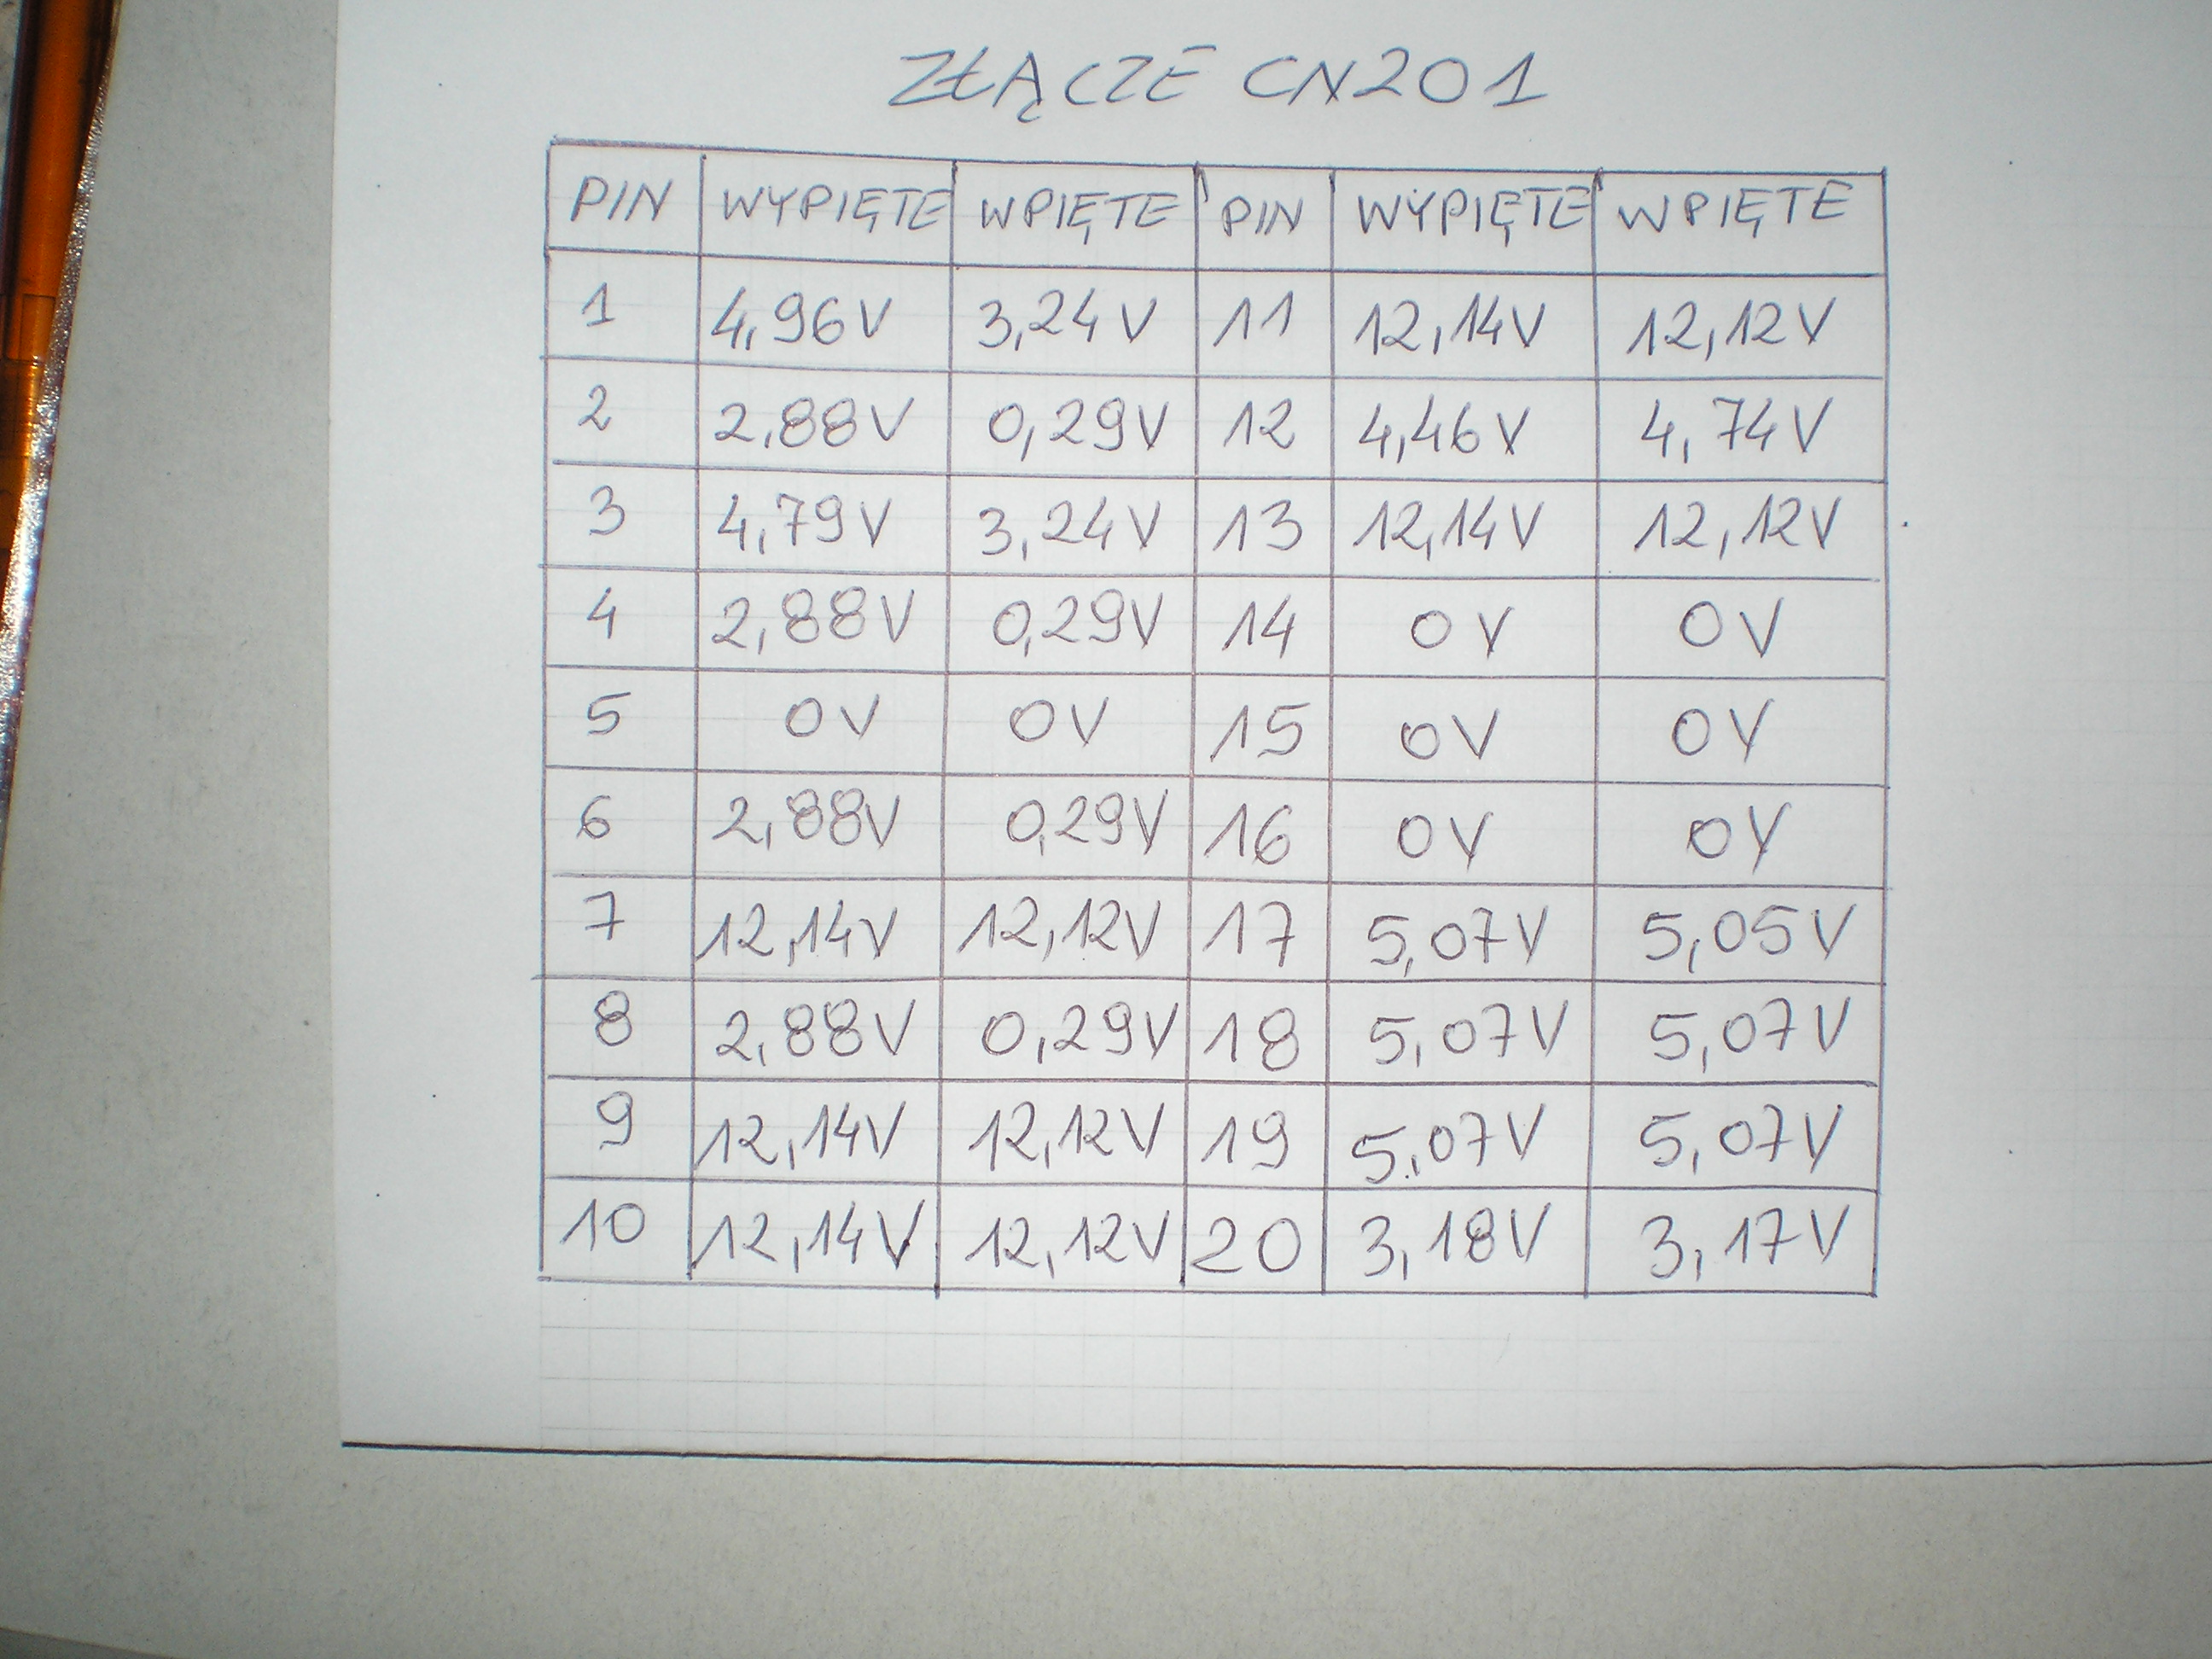 ZŁĄCZE CN201
PIN WYPIĘTE WPIĘTE PIN WYPIĘTE WPIĘTE
1 4,96V 3,24V 11 12,14V 12,12V
2 2,88V 0,29V 12 4,46V 4,74V
3 4,79V 3,24V 13 12,14V 12,12V
4 2,88V 0,29V 14 0V 0V
5 0V 0V 15 0V 0V
6 2,88V 0,29V 16 0V 0V
7 12,14V 12,12V 17 5,07V 5,05V
8 2,88V 0,29V 18 5,07V 5,07V
9 12,14V 12,12V 19 5,07V 5,07V
10 12,14V 12,12V 20 3,18V 3,17V